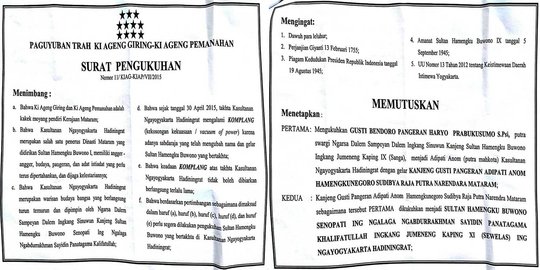 PAGUYUBAN TRAH KI AGENG GIRING-KI AGENG PEMANAHAN
SURAT PENGUKUHAN
Nomor 11/KIAG-KIAP/VII/2015
Menimbang :
a. Bahwa Ki Ageng Giring dan Ki Ageng Pemanahan adalah
kakek moyang pendiri Kerajaan Mataram;
b. Bahwa Kasultanan Ngayogyakarta Hadiningrat
merupakan salah satu penerus Dinasti Mataram yang
didirikan Sultan Hamengku Buwono I, memiliki angger -
angger, budaya, pangeran, dan adat istiadat yang perlu
terus dipertahankan, dan dijaga kelestariannya;
c. Bahwa Kasultanan Ngayogyakarta Hadiningrat
merupakan warisan budaya bangsa yang berlangsung
terus temurun dan dipimpin oleh Ngarsa Dalem
Sampeyan Dalem Ingkang Sinuwun Kanjeng Sultan
Hamengku Buwono Senopati Ing Ngalaga
Ngabdurrakhman Sayidin Panatagama Kalifatullah;
d. Bahwa sejak tanggal 30 April 2015, takhta Kasultanan
Ngayogyakarta Hadiningrat mengalami KOMPLANG
(kekosongan kekuasaan / vacuum of power) karena
adanya sabdaraja yang telah mengubah nama dan gelar
Sultan Hamengku Buwono yang bertakhta;
e. Bahwa keadaan KOMPLANG atas takhta Kasultanan
Ngayogyakarta Hadiningrat tidak boleh dibiarkan
berlangsung terlalu lama;
f. Bahwa berdasarkan pertimbangan sebagaimana dimaksud
dalam huruf (a), huruf (b), huruf (c), huruf (d), dan huruf
(e) perlu segera dilakukan pengukuhan Sultan Hamengku
Buwono yang bertakhta di Kasultanan Ngayogyakarta
Hadiningrat;
Mengingat:
1. Dawuh para leluhur;
2. Perjanjian Giyanti 13 Februari 1755;
3. Piagam Kedudukan Presiden Republik Indonesia tanggal
19 Agustus 1945;
4. Amanat Sultan Hamengku Buwono IX tanggal 5
September 1945;
5. UU Nomor 13 Tahun 2012 tentang Keistimewaan Daerah
Istimewa Yogyakarta.
MEMUTUSKAN
Menetapkan :
PERTAMA: Mengukuhkan GUSTI BENDORO PANGERAN HARYO PRABUKUSUMO S.Psi, putra
swargi Ngarsa Dalem Sampeyan Dalem Ingkang Sinuwun Kanjeng Sultan Hamengku Buwono
Ingkang Jumeneng Kaping IX (Sanga), menjadi Adipati Anom (putra mahkota) Kasultanan
Ngayogyakarta Hadiningrat dengan gelar KANJENG GUSTI PANGERAN ADIPATI ANOM
HAMENGKUNEGORO SUDIBYA RAJA PUTRA NARENDRA MATARAM;
KEDUA : Kanjeng Gusti Pangeran Adipati Anom Hamengkunegoro Sudibya Raja Putra Narendra Mataram
sebagaimana tersebut PERTAMA dikukuhkan menjadi SULTAN HAMENGKU BUWONO
SENOPATI ING NGALAGA NGABDURRAKHMAN SAYIDIN PANATAGAMA
KHALIFATULLAH INGKANG JUMENENG KAPING XI (SEWELAS) ING
NGAYOGYAKARTA HADININGRAT;